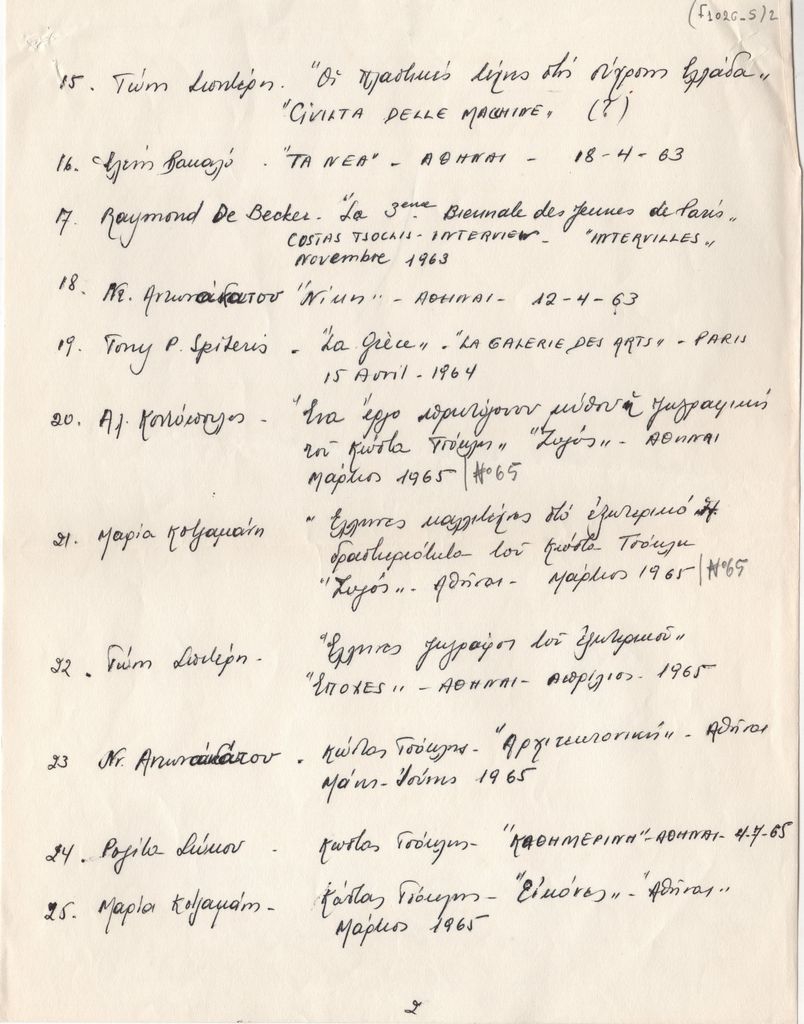 (f1026-S)2
15. Τώνη Σπητέρη. "Οι πλαστικές τέχνες στή σύχρονη Ελλάδα"
"CIVILTA DELLE MACHINE" (?)
16. Ελένη Βακαλό. "ΤΑ ΝΕΑ" - ΑΘΗΝΑΙ - 18-4-63
17. Raymond De Becker. "La 3eme Biennale des Jeunes de Paris"
COSTAS TSOCLIS - INTERVIEW - "INTERVILLES"
Novembre 1963
18. "Νίκη" - ΑΘΗΝΑΙ - 12-4-63
19. Tony P. Spiteris - "La Grèce" - "LA GALERIE DES ARTS" - PARIS
15 Avril - 1964
20. Αλ. Κοντόπουλος - "Ένα έργο πρωτόγονου μύθου ἡ ζωγραφική
τού Κώστα Τσόκλη" "Ζυγός" - ΑΘΗΝΑΙ
Μάρτιος 1965 | No 65
21. Μαρία Κοτζαμάνη "Έλληνες καλλιτέχνες στό ἐξωτερικό Ἡ
δραστηριότητα τού Κώστα Τσόκλη
"Ζυγός" - Αθήναι - Μάρτιος 1965 | No 65
22. Τώνη Σπιτέρη - "Έλληνες ζωγράφοι τού ἐξωτερικού"
"ΕΠΟΧΕΣ" - ΑΘΗΝΑΙ - Απρίλιος - 1965
23 Κώστας Τσόκλης - "Αρχιτεκτονική" - Αθήναι
Μάης - Ιούνης 1965
24. Ροζίτα Σώκου - Κώστας Τσόκλης - "ΚΑΘΗΜΕΡΙΝΗ" - ΑΘΗΝΑΙ - 4-7-65
25. Μαρία Κοτζαμάνη - Κώστας Τσόκλης - "Εἰκόνες" - "Αθήναι"
Μάρτιος 1965
2